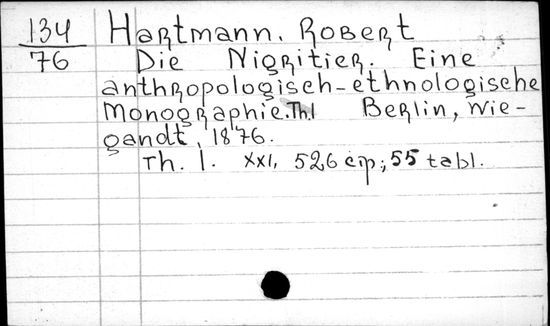 134 Hartmann, Robert
76 Die Nigritier. Eine
anthropologisch-ethnologische
Monographie.Th.1 Berlin, Wie-
gandt, 1876.
Th. 1. XXI, 526 стр; 55 tabl.